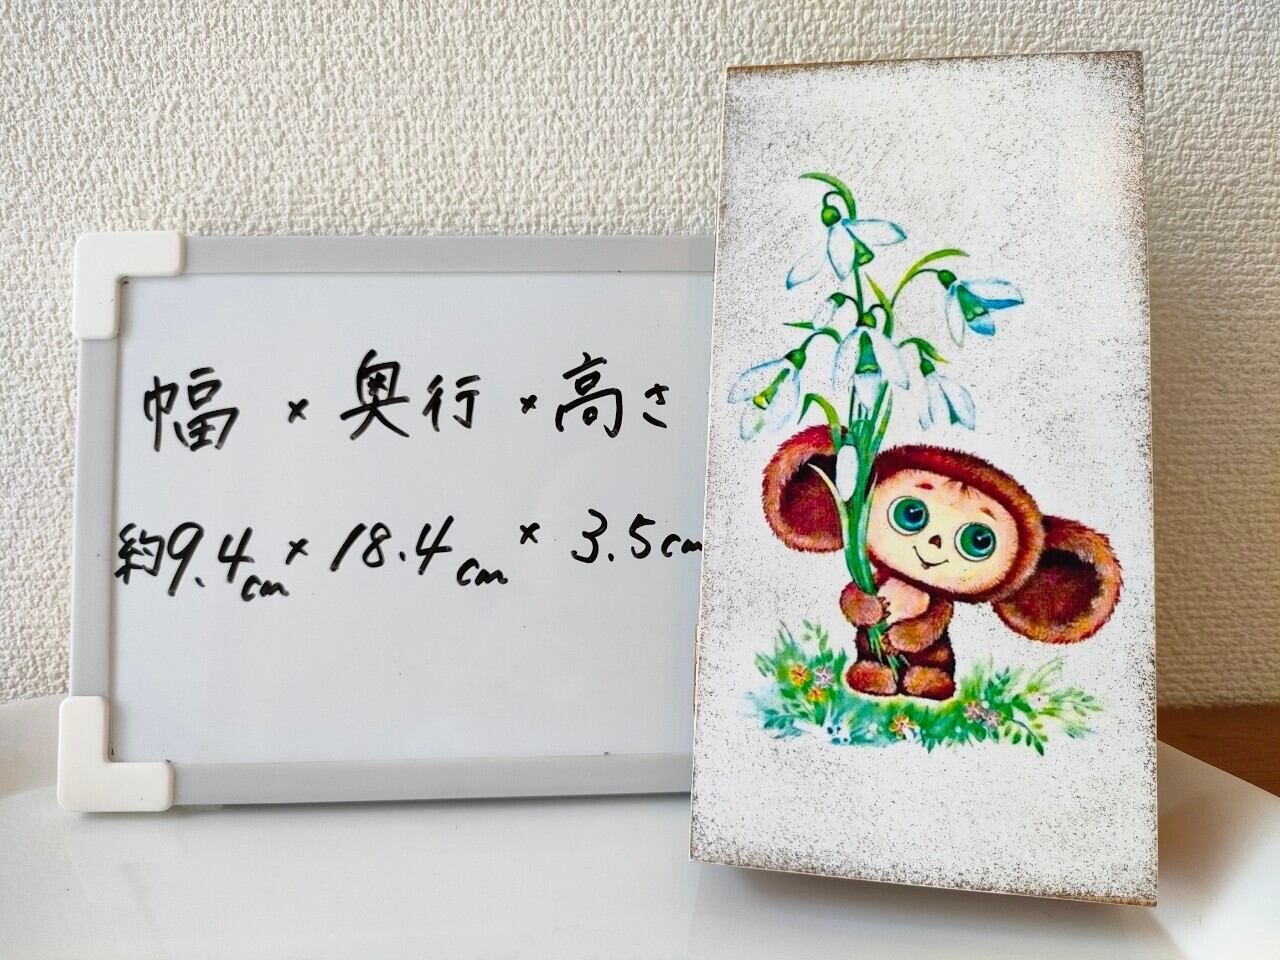 幅 × 奥行 × 高さ
約9.4cm × 18.4cm × 3.5cm